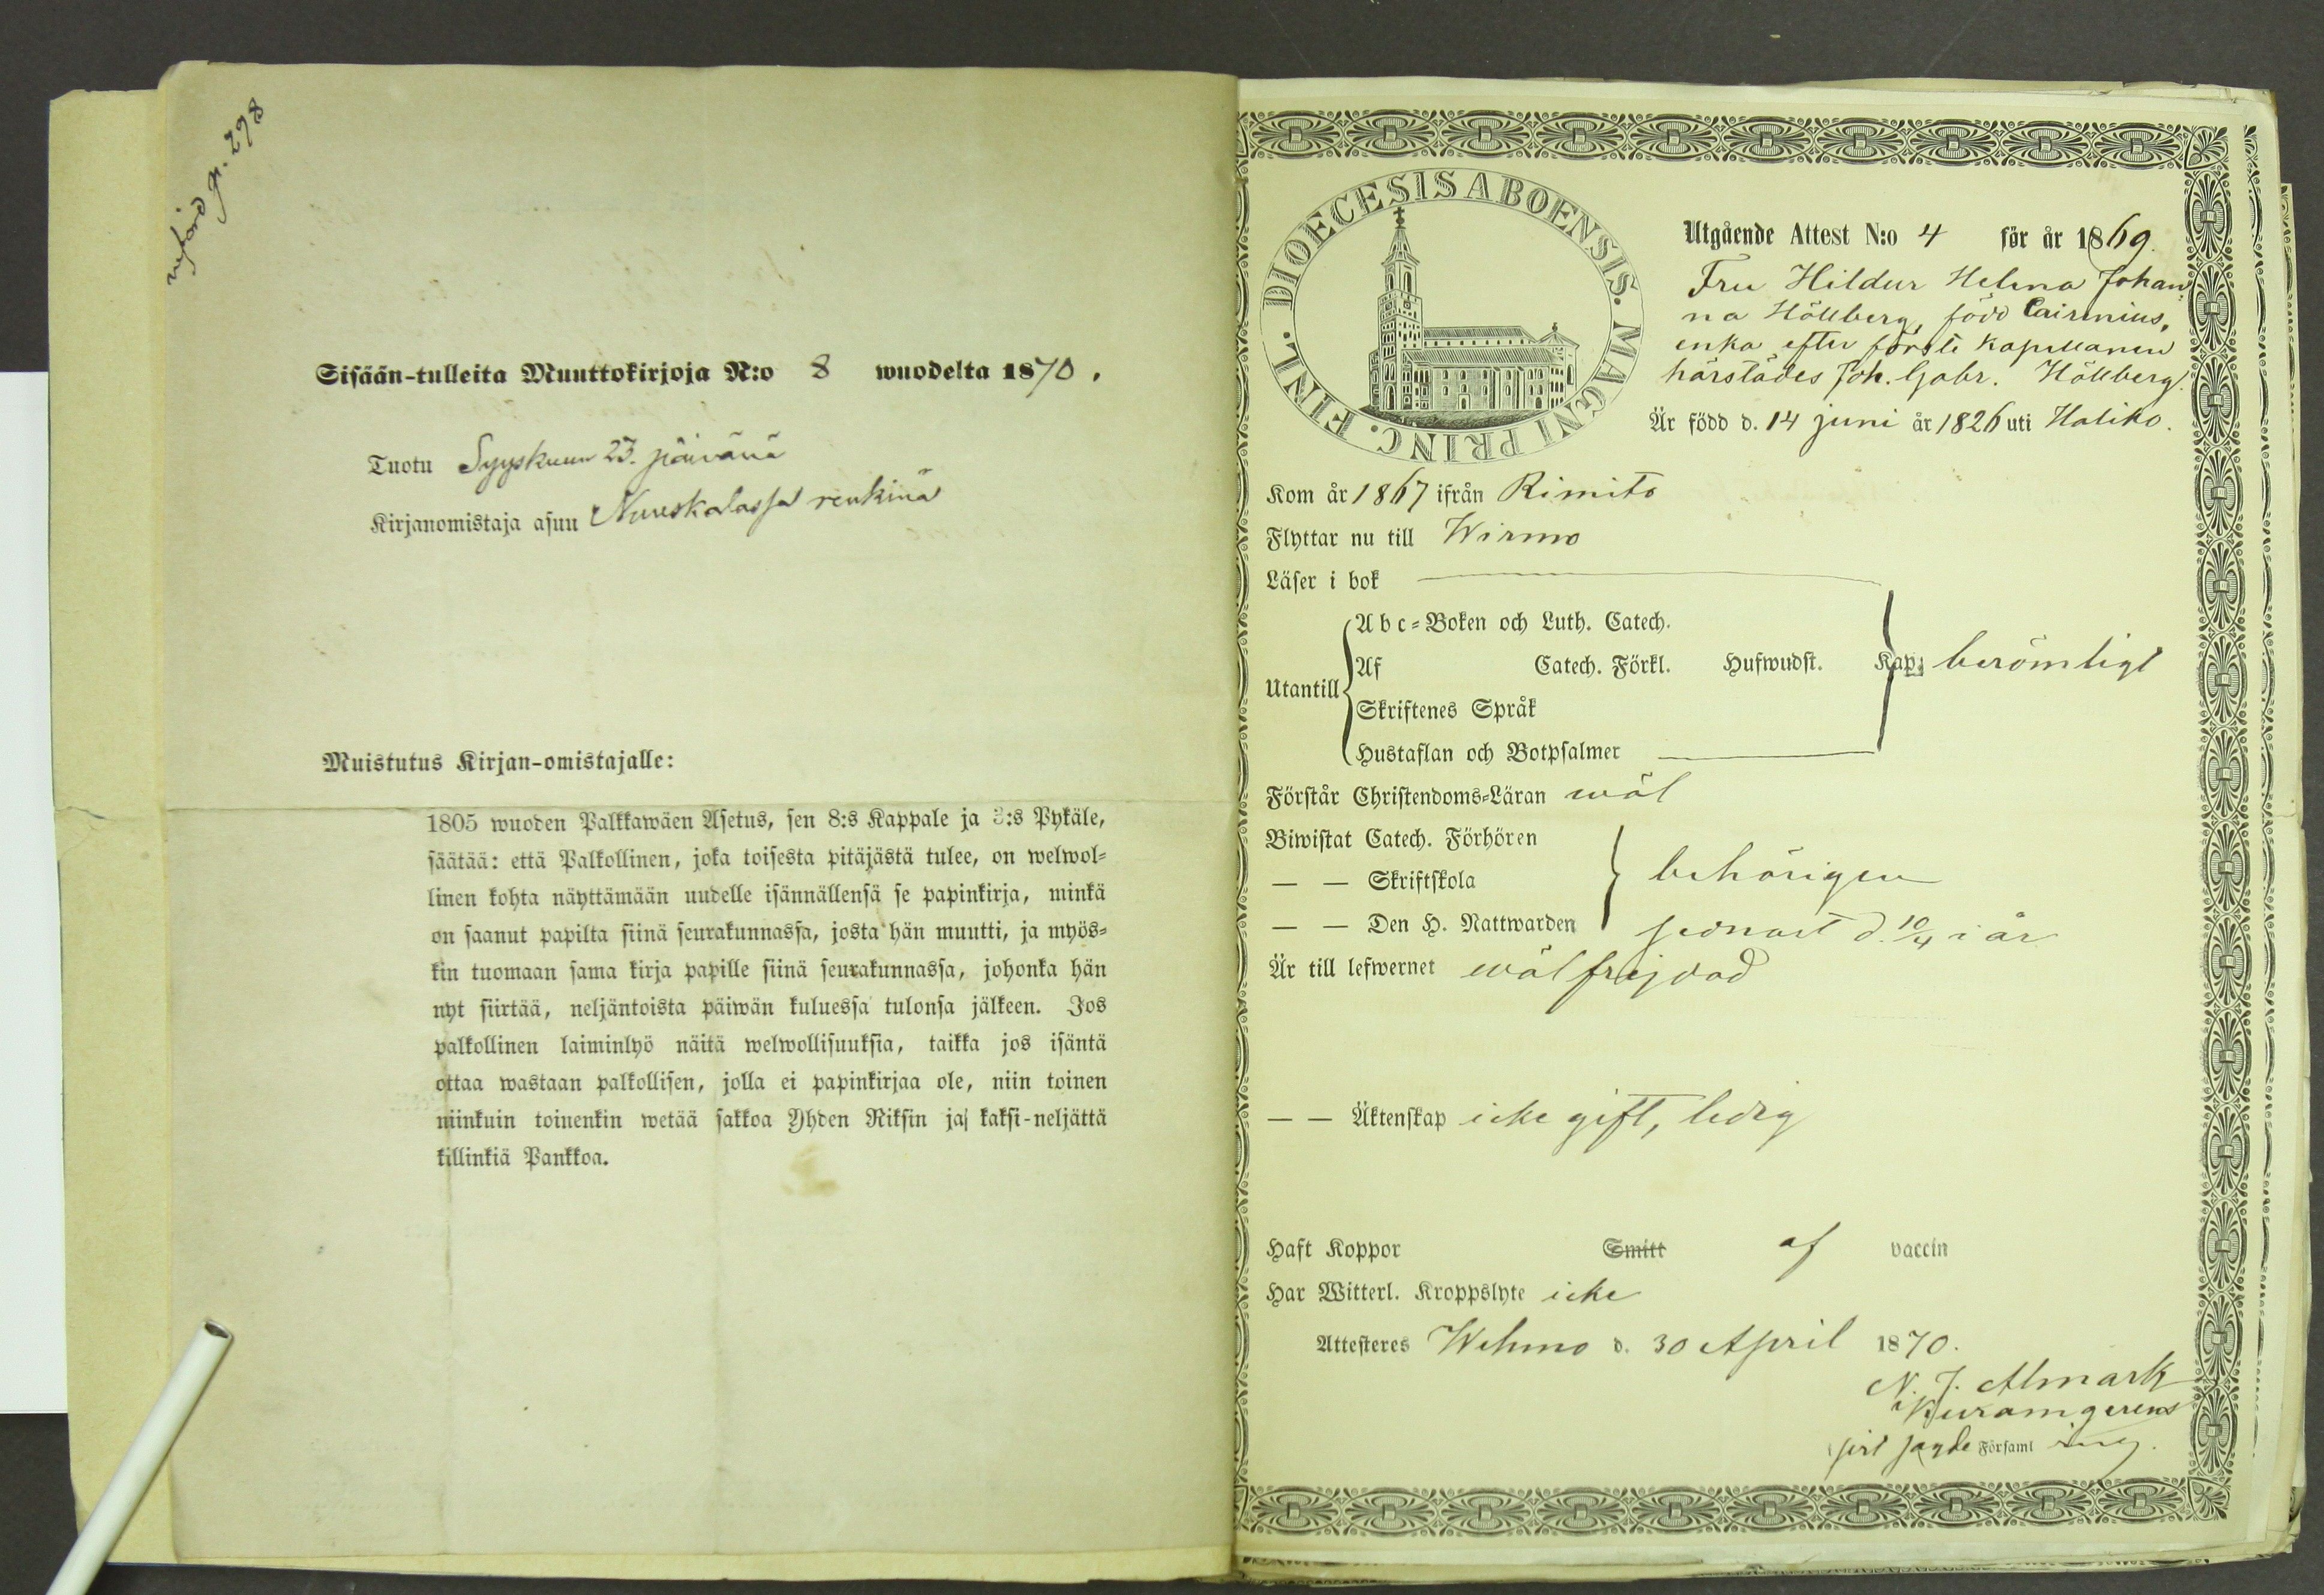 införd p. 298
Sisään-tulleita Muuttokirjoja N:o 8 wuodelta 1870.
Tuotu Syyskuun 23. päivänä
Kirjanomistaja asuu renkinä
Muistutus Kirjan-omistajalle:
1805 wuoden Palkkawäen Asetus, sen 8:s Kappale ja 3:s Pykäle,
säätää: että Palkollinen, joka toisesta pitäjästä tulee, on welwol-
linen kohta näyttämään uudelle isännällensä se papinkirja, minkä
on saanut papilta siinä seurakunnassa, josta hän muutti, ja myös-
kin tuomaan sama kirja papille siinä seurakunnassa, johonka hän
nyt siirtää, neljäntoista päiwän kuluessa tulonsa jälkeen. Jos
palkollinen laiminlyö näitä welwollisuuksia, taikka jos isäntä
ottaa wastaan palkollisen, jolla ei papinkirjaa ole, niin toinen
niinkuin toinenkin wetää sakkoa Yhden Riksin ja kaksi-neljättä
killinkiä Pankkoa.
DIOECESIS ABOENSIS. MAGNI PRINC. FINL.
Utgående Attest N:o 4 för år 1869.
Fru Hildur Helena Johan-
na Höllberg, född
enka efter förste Kapellanen
härstädes Joh. Gabr. Höllberg.
Är född d. 14 juni år 1826 uti Haliko.
Kom år 1867 ifrån Rimito
Flyttar nu till Wirmo
Läser i bok
Abc-Boken och Luth. Catech.
Utantill Af Catech. Förkl. Hufwudst. Kap. berömligt
Skriftenes Språk
Hustaflan och Botpsalmer
Förstår Christendoms-Läran wäl
Biwistat Catech. Förhören
— — Skriftskola behörigen
— — Den H. Nattwarden sednast d. 10/4 i år
Är till lefwernet wälfrejdad
— — Äktenskap icke gift, ledig
Haft Koppor Smitt af vaccin
Har Witterl. Kroppslyte icke
Attesteres Wehmo d. 30 April 1870.
N. J. Almark
sagde Församl ing.